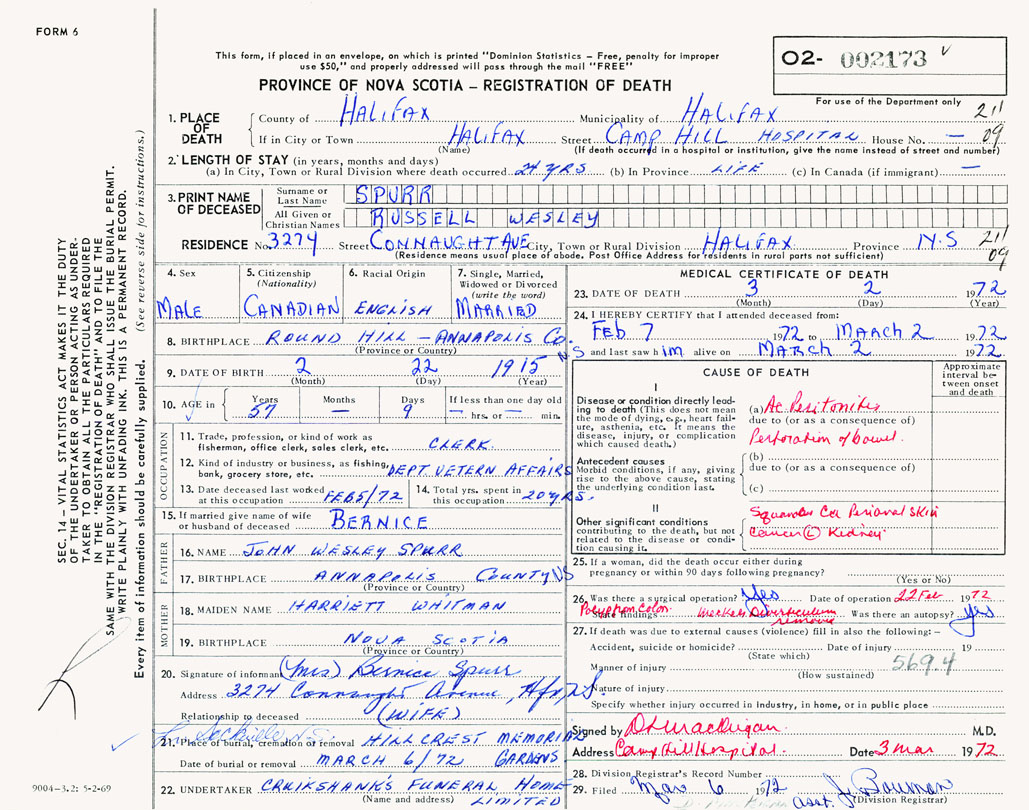 FORM 6
This form, if placed in an envelope, on which is printed "Dominion Statistics - Free, penalty for improper
use $50," and properly addressed will pass through the mail "FREE"
O2- 002173
PROVINCE OF NOVA SCOTIA - REGISTRATION OF DEATH
For use of the Department only
1. PLACE OF DEATH
County of HALIFAX Municipality of HALIFAX 211
If in City or Town HALIFAX Street CAMP HILL HOSPITAL House No. — 09
(Name) (If death occurred in a hospital or institution, give the name instead of street and number)
2. LENGTH OF STAY (in years, months and days)
(a) In City, Town or Rural Division where death occurred 24 YRS (b) In Province LIFE (c) In Canada (if immigrant) —
3. PRINT NAME OF DECEASED
Surname or Last Name SPURR
All Given or Christian Names RUSSELL WESLEY
RESIDENCE No. 3274 Street CONNAUGHT AVE City, Town or Rural Division HALIFAX Province N.S 211
(Residence means usual place of abode. Post Office Address for residents in rural parts not sufficient) 09
4. Sex MALE
5. Citizenship (Nationality) CANADIAN
6. Racial Origin ENGLISH
7. Single, Married, Widowed or Divorced (write the word) MARRIED
8. BIRTHPLACE ROUND HILL - ANNAPOLIS Co. NS
(Province or Country)
9. DATE OF BIRTH 2 22 1915
(Month) (Day) (Year)
10. AGE in Years 57 Months — Days 9 If less than one day old — hrs. or — min.
OCCUPATION
11. Trade, profession, or kind of work as
fisherman, office clerk, sales clerk, etc. CLERK.
12. Kind of industry or business, as fishing,
bank, grocery store, etc. DEPT. VETERN AFFAIRS
13. Date deceased last worked
at this occupation FEB 5/72
14. Total yrs. spent in
this occupation 20 YRS.
15. If married give name of wife
or husband of deceased BERNICE
FATHER
16. NAME JOHN WESLEY SPURR
17. BIRTHPLACE ANNAPOLIS COUNTY NS
(Province or Country)
MOTHER
18. MAIDEN NAME HARRIETT WHITMAN
19. BIRTHPLACE NOVA SCOTIA
(Province or Country)
20. Signature of informant (Mrs) Bernice Spurr
Address 3274 Connaught Avenue, Hfx, N.S.
Relationship to deceased (WIFE)
Sackville N.S.
21. Place of burial, cremation or removal HILLCREST MEMORIAL
Date of burial or removal MARCH 6/72 GARDENS
22. UNDERTAKER CRUIKSHANK'S FUNERAL HOME
(Name and address) LIMITED
MEDICAL CERTIFICATE OF DEATH
23. DATE OF DEATH 3 2 1972
(Month) (Day) (Year)
24. I HEREBY CERTIFY that I attended deceased from:
FEB 7 1972 to MARCH 2 1972
and last saw him alive on MARCH 2 1972
CAUSE OF DEATH
Approximate interval between onset and death
I
Disease or condition directly leading to death (This does not mean the mode of dying, e.g., heart failure, asthenia, etc. It means the disease, injury, or complication which caused death.)
(a) Ac Peritonitis
due to (or as a consequence of)
Perforation of bowel.
Antecedent causes
Morbid conditions, if any, giving rise to the above cause, stating the underlying condition last.
(b)
due to (or as a consequence of)
(c)
II
Other significant conditions
contributing to the death, but not related to the disease or condition causing it.
Squamous Ca Perianal skin
Cancer (L) Kidney
25. If a woman, did the death occur either during
pregnancy or within 90 days following pregnancy?
(Yes or No)
26. Was there a surgical operation? Yes Date of operation 22 Feb 1972
State findings Polyp from Colon. Meckels Diverticulum removed Was there an autopsy? yes
27. If death was due to external causes (violence) fill in also the following: -
Accident, suicide or homicide? Date of injury 19
(State which)
569.4
Manner of injury
(How sustained)
Nature of injury
Specify whether injury occurred in industry, in home, or in public place
Signed by M.D.
Address Camp Hill Hospital. Date 3 Mar 1972
28. Division Registrar's Record Number
29. Filed Mar 6 1972 asst. J. Bowman
(Division Registrar)
SEC. 14 - VITAL STATISTICS ACT MAKES IT THE DUTY
OF THE UNDERTAKER OR PERSON ACTING AS UNDER-
TAKER TO OBTAIN ALL THE PARTICULARS REQUIRED
IN THE "REGISTRATION OF DEATH" AND TO FILE THE
SAME WITH THE DIVISION REGISTRAR WHO SHALL ISSUE THE BURIAL PERMIT.
WRITE PLAINLY WITH UNFADING INK. THIS IS A PERMANENT RECORD.
Every item of information should be carefully supplied. (See reverse side for instructions.)
9004-3.2: 5-2-69